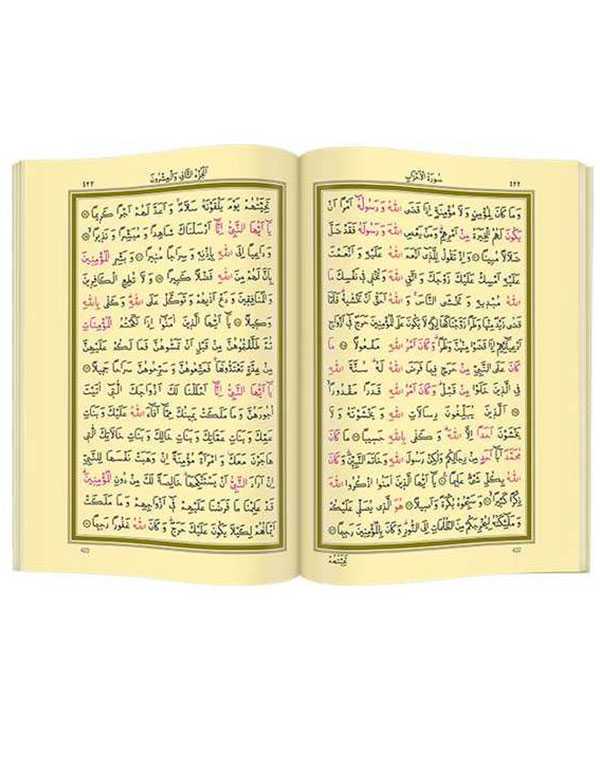 سُورَةُ الْأَحْزَابِ
٤٢٢
وَمَا كَانَ لِمُؤْمِنٍ وَلَا مُؤْمِنَةٍ اِذَا قَضَى اللّٰهُ وَرَسُولُهُ اَمْرًا اَنْ
يَكُونَ لَهُمُ الْخِيَرَةُ مِنْ اَمْرِهِمْ وَمَنْ يَعْصِ اللّٰهَ وَرَسُولَهُ فَقَدْ ضَلَّ
ضَلَالًا مُبِينًا ۞ وَاِذْ تَقُولُ لِلَّذِي اَنْعَمَ اللّٰهُ عَلَيْهِ وَاَنْعَمْتَ
عَلَيْهِ اَمْسِكْ عَلَيْكَ زَوْجَكَ وَاتَّقِ اللّٰهَ وَتُخْفِي فِي نَفْسِكَ مَا
اللّٰهُ مُبْدِيهِ وَتَخْشَى النَّاسَ وَاللّٰهُ اَحَقُّ اَنْ تَخْشٰيهُ فَلَمَّا
قَضٰى زَيْدٌ مِنْهَا وَطَرًا زَوَّجْنَاكَهَا لِكَيْ لَا يَكُونَ عَلَى الْمُؤْمِنِينَ حَرَجٌ فِي اَزْوَاجِ
اَدْعِيَائِهِمْ اِذَا قَضَوْا مِنْهُنَّ وَطَرًا وَكَانَ اَمْرُ اللّٰهِ مَفْعُولًا ۞ مَا
كَانَ عَلَى النَّبِيِّ مِنْ حَرَجٍ فِيمَا فَرَضَ اللّٰهُ لَهُ سُنَّةَ اللّٰهِ
فِي الَّذِينَ خَلَوْا مِنْ قَبْلُ وَكَانَ اَمْرُ اللّٰهِ قَدَرًا مَقْدُورًا
۞ اَلَّذِينَ يُبَلِّغُونَ رِسَالَاتِ اللّٰهِ وَيَخْشَوْنَهُ وَلَا
يَخْشَوْنَ اَحَدًا اِلَّا اللّٰهَ وَكَفٰى بِاللّٰهِ حَسِيبًا ۞ مَا كَانَ
مُحَمَّدٌ اَبَا اَحَدٍ مِنْ رِجَالِكُمْ وَلٰكِنْ رَسُولَ اللّٰهِ وَخَاتَمَ النَّبِيِّينَ وَكَانَ
اللّٰهُ بِكُلِّ شَيْءٍ عَلِيمًا ۞ يَا اَيُّهَا الَّذِينَ اٰمَنُوا اذْكُرُوا اللّٰهَ
ذِكْرًا كَثِيرًا ۞ وَسَبِّحُوهُ بُكْرَةً وَاَصِيلًا ۞ هُوَ الَّذِي يُصَلِّي عَلَيْكُمْ
وَمَلٰئِكَتُهُ لِيُخْرِجَكُمْ مِنَ الظُّلُمَاتِ اِلَى النُّورِ وَكَانَ بِالْمُؤْمِنِينَ رَحِيمًا ۞
422
تَحِيَّتُهُمْ
اَلْجُزْءُ الثَّانِي وَالْعِشْرُونَ
٤٢٣
تَحِيَّتُهُمْ يَوْمَ يَلْقَوْنَهُ سَلَامٌ وَاَعَدَّ لَهُمْ اَجْرًا كَرِيمًا ۞
يَا اَيُّهَا النَّبِيُّ اِنَّا اَرْسَلْنَاكَ شَاهِدًا وَمُبَشِّرًا وَنَذِيرًا ۞
وَدَاعِيًا اِلَى اللّٰهِ بِاِذْنِهِ وَسِرَاجًا مُنِيرًا ۞ وَبَشِّرِ الْمُؤْمِنِينَ
بِاَنَّ لَهُمْ مِنَ اللّٰهِ فَضْلًا كَبِيرًا ۞ وَلَا تُطِعِ الْكَافِرِينَ
وَالْمُنَافِقِينَ وَدَعْ اَذٰيهُمْ وَتَوَكَّلْ عَلَى اللّٰهِ وَكَفٰى بِاللّٰهِ
وَكِيلًا ۞ يَا اَيُّهَا الَّذِينَ اٰمَنُوا اِذَا نَكَحْتُمُ الْمُؤْمِنَاتِ
ثُمَّ طَلَّقْتُمُوهُنَّ مِنْ قَبْلِ اَنْ تَمَسُّوهُنَّ فَمَا لَكُمْ عَلَيْهِنَّ
مِنْ عِدَّةٍ تَعْتَدُّونَهَا فَمَتِّعُوهُنَّ وَسَرِّحُوهُنَّ سَرَاحًا جَمِيلًا ۞
يَا اَيُّهَا النَّبِيُّ اِنَّا اَحْلَلْنَا لَكَ اَزْوَاجَكَ الّٰتِي اٰتَيْتَ
اُجُورَهُنَّ وَمَا مَلَكَتْ يَمِينُكَ مِمَّا اَفَاءَ اللّٰهُ عَلَيْكَ وَبَنَاتِ
عَمِّكَ وَبَنَاتِ عَمَّاتِكَ وَبَنَاتِ خَالِكَ وَبَنَاتِ خَالَاتِكَ الّٰتِي
هَاجَرْنَ مَعَكَ وَامْرَاَةً مُؤْمِنَةً اِنْ وَهَبَتْ نَفْسَهَا لِلنَّبِيِّ
اِنْ اَرَادَ النَّبِيُّ اَنْ يَسْتَنْكِحَهَا خَالِصَةً لَكَ مِنْ دُونِ الْمُؤْمِنِينَ
قَدْ عَلِمْنَا مَا فَرَضْنَا عَلَيْهِمْ فِي اَزْوَاجِهِمْ وَمَا مَلَكَتْ
اَيْمَانُهُمْ لِكَيْلَا يَكُونَ عَلَيْكَ حَرَجٌ وَكَانَ اللّٰهُ غَفُورًا رَحِيمًا ۞
423